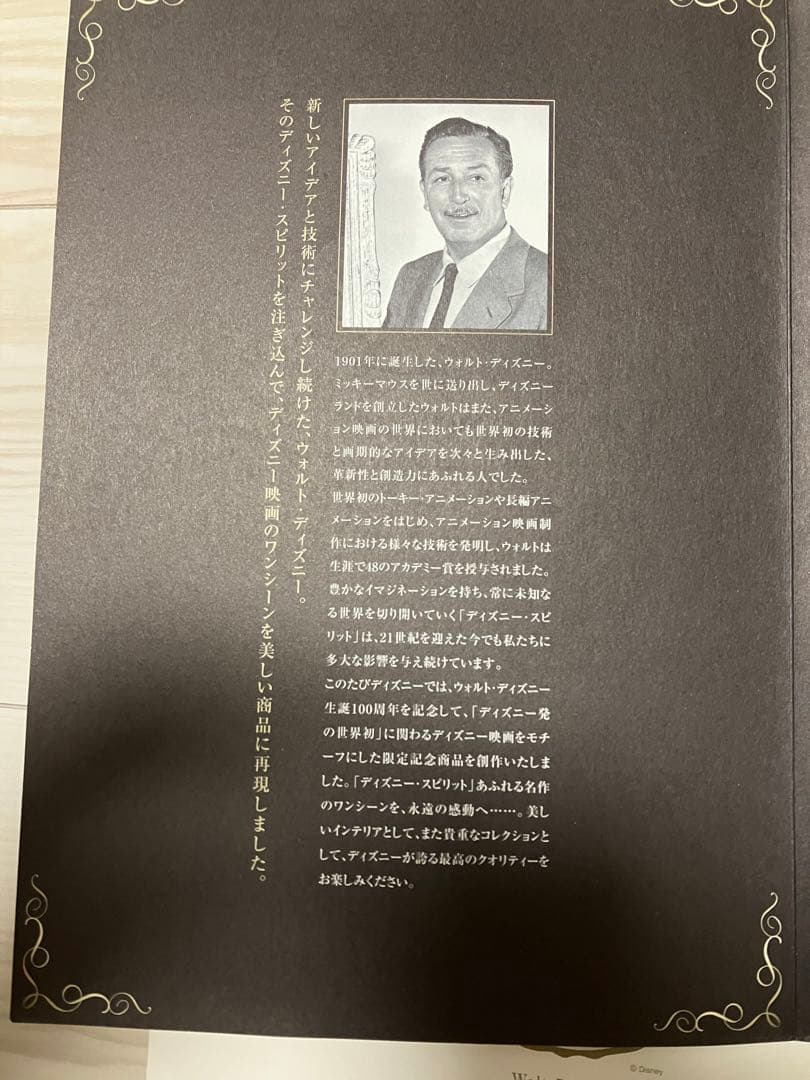 新しいアイデアと技術にチャレンジし続けた、ウォルト・ディズニー。
そのディズニー・スピリットを注ぎ込んで、ディズニー映画のワンシーンを美しい商品に再現しました。
1901年に誕生した、ウォルト・ディズニー。
ミッキーマウスを世に送り出し、ディズニー
ランドを創立したウォルトはまた、アニメーシ
ョン映画の世界においても世界初の技術
と画期的なアイデアを次々と生み出した、
革新性と創造力にあふれる人でした。
世界初のトーキー・アニメーションや長編アニ
メーションをはじめ、アニメーション映画制
作における様々な技術を発明し、ウォルトは
生涯で48のアカデミー賞を授与されました。
豊かなイマジネーションを持ち、常に未知な
る世界を切り開いていく「ディズニー・スピ
リット」は、21世紀を迎えた今でも私たちに
多大な影響を与え続けています。
このたびディズニーでは、ウォルト・ディズニー
生誕100周年を記念して、「ディズニー発
の世界初」に関わるディズニー映画をモチ
ーフにした限定記念商品を創作いたしま
した。「ディズニー・スピリット」あふれる名作
のワンシーンを、永遠の感動へ……。美し
いインテリアとして、また貴重なコレクションと
して、ディズニーが誇る最高のクオリティーを
お楽しみください。
© Disney